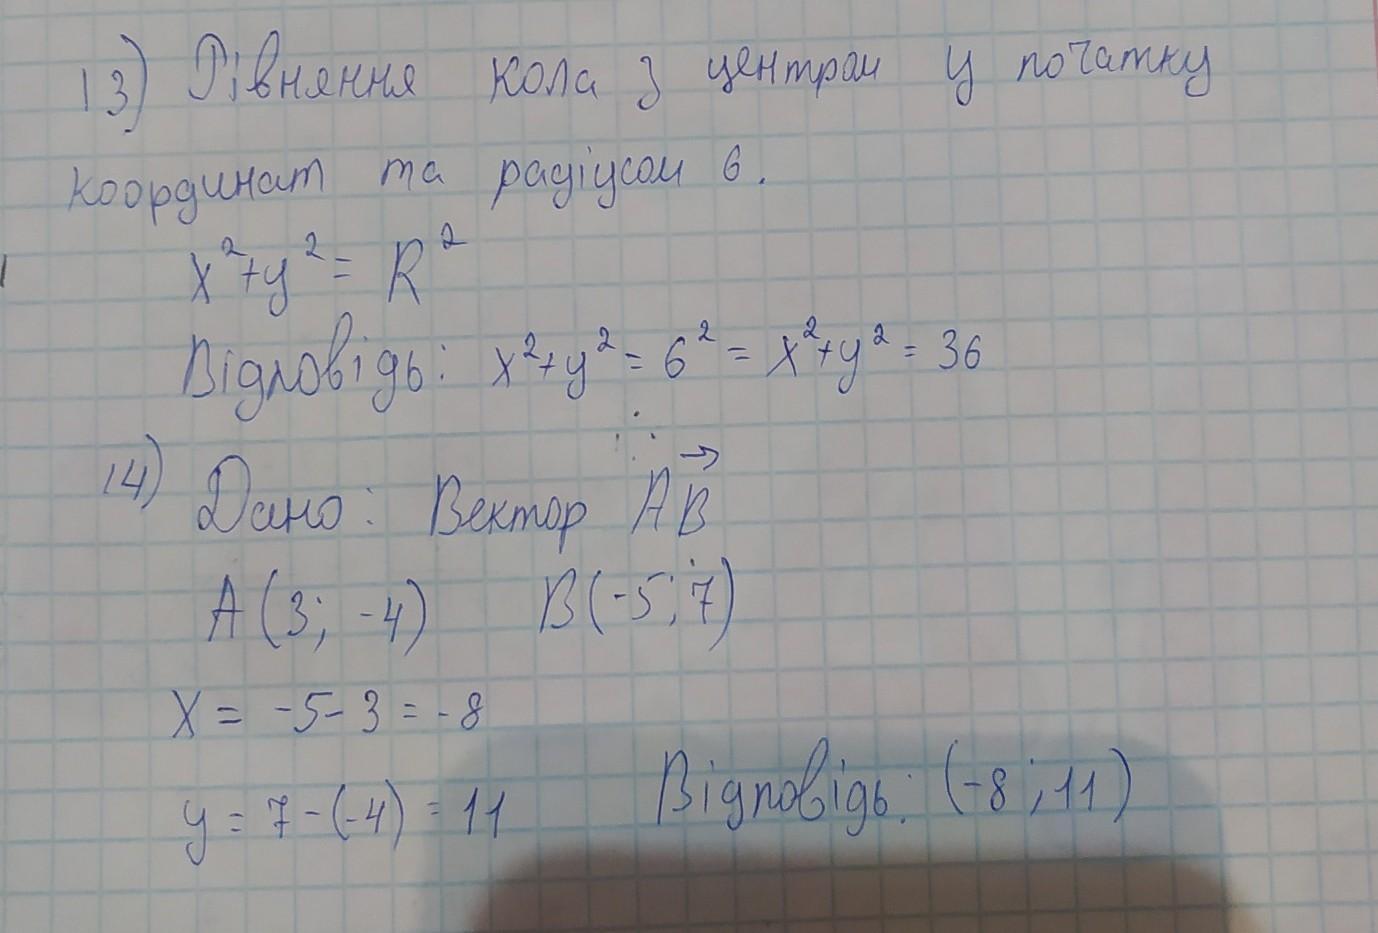 13) Рівняння кола з центром у початку
координат та радіусом 6.
x²+y² = R²
Відповідь: x²+y² = 6² = x²+y² = 36
14) Дано: Вектор AB→
A(3; -4) B(-5; 7)
x = -5-3 = -8
y = 7-(-4) = 11 Відповідь: (-8; 11)